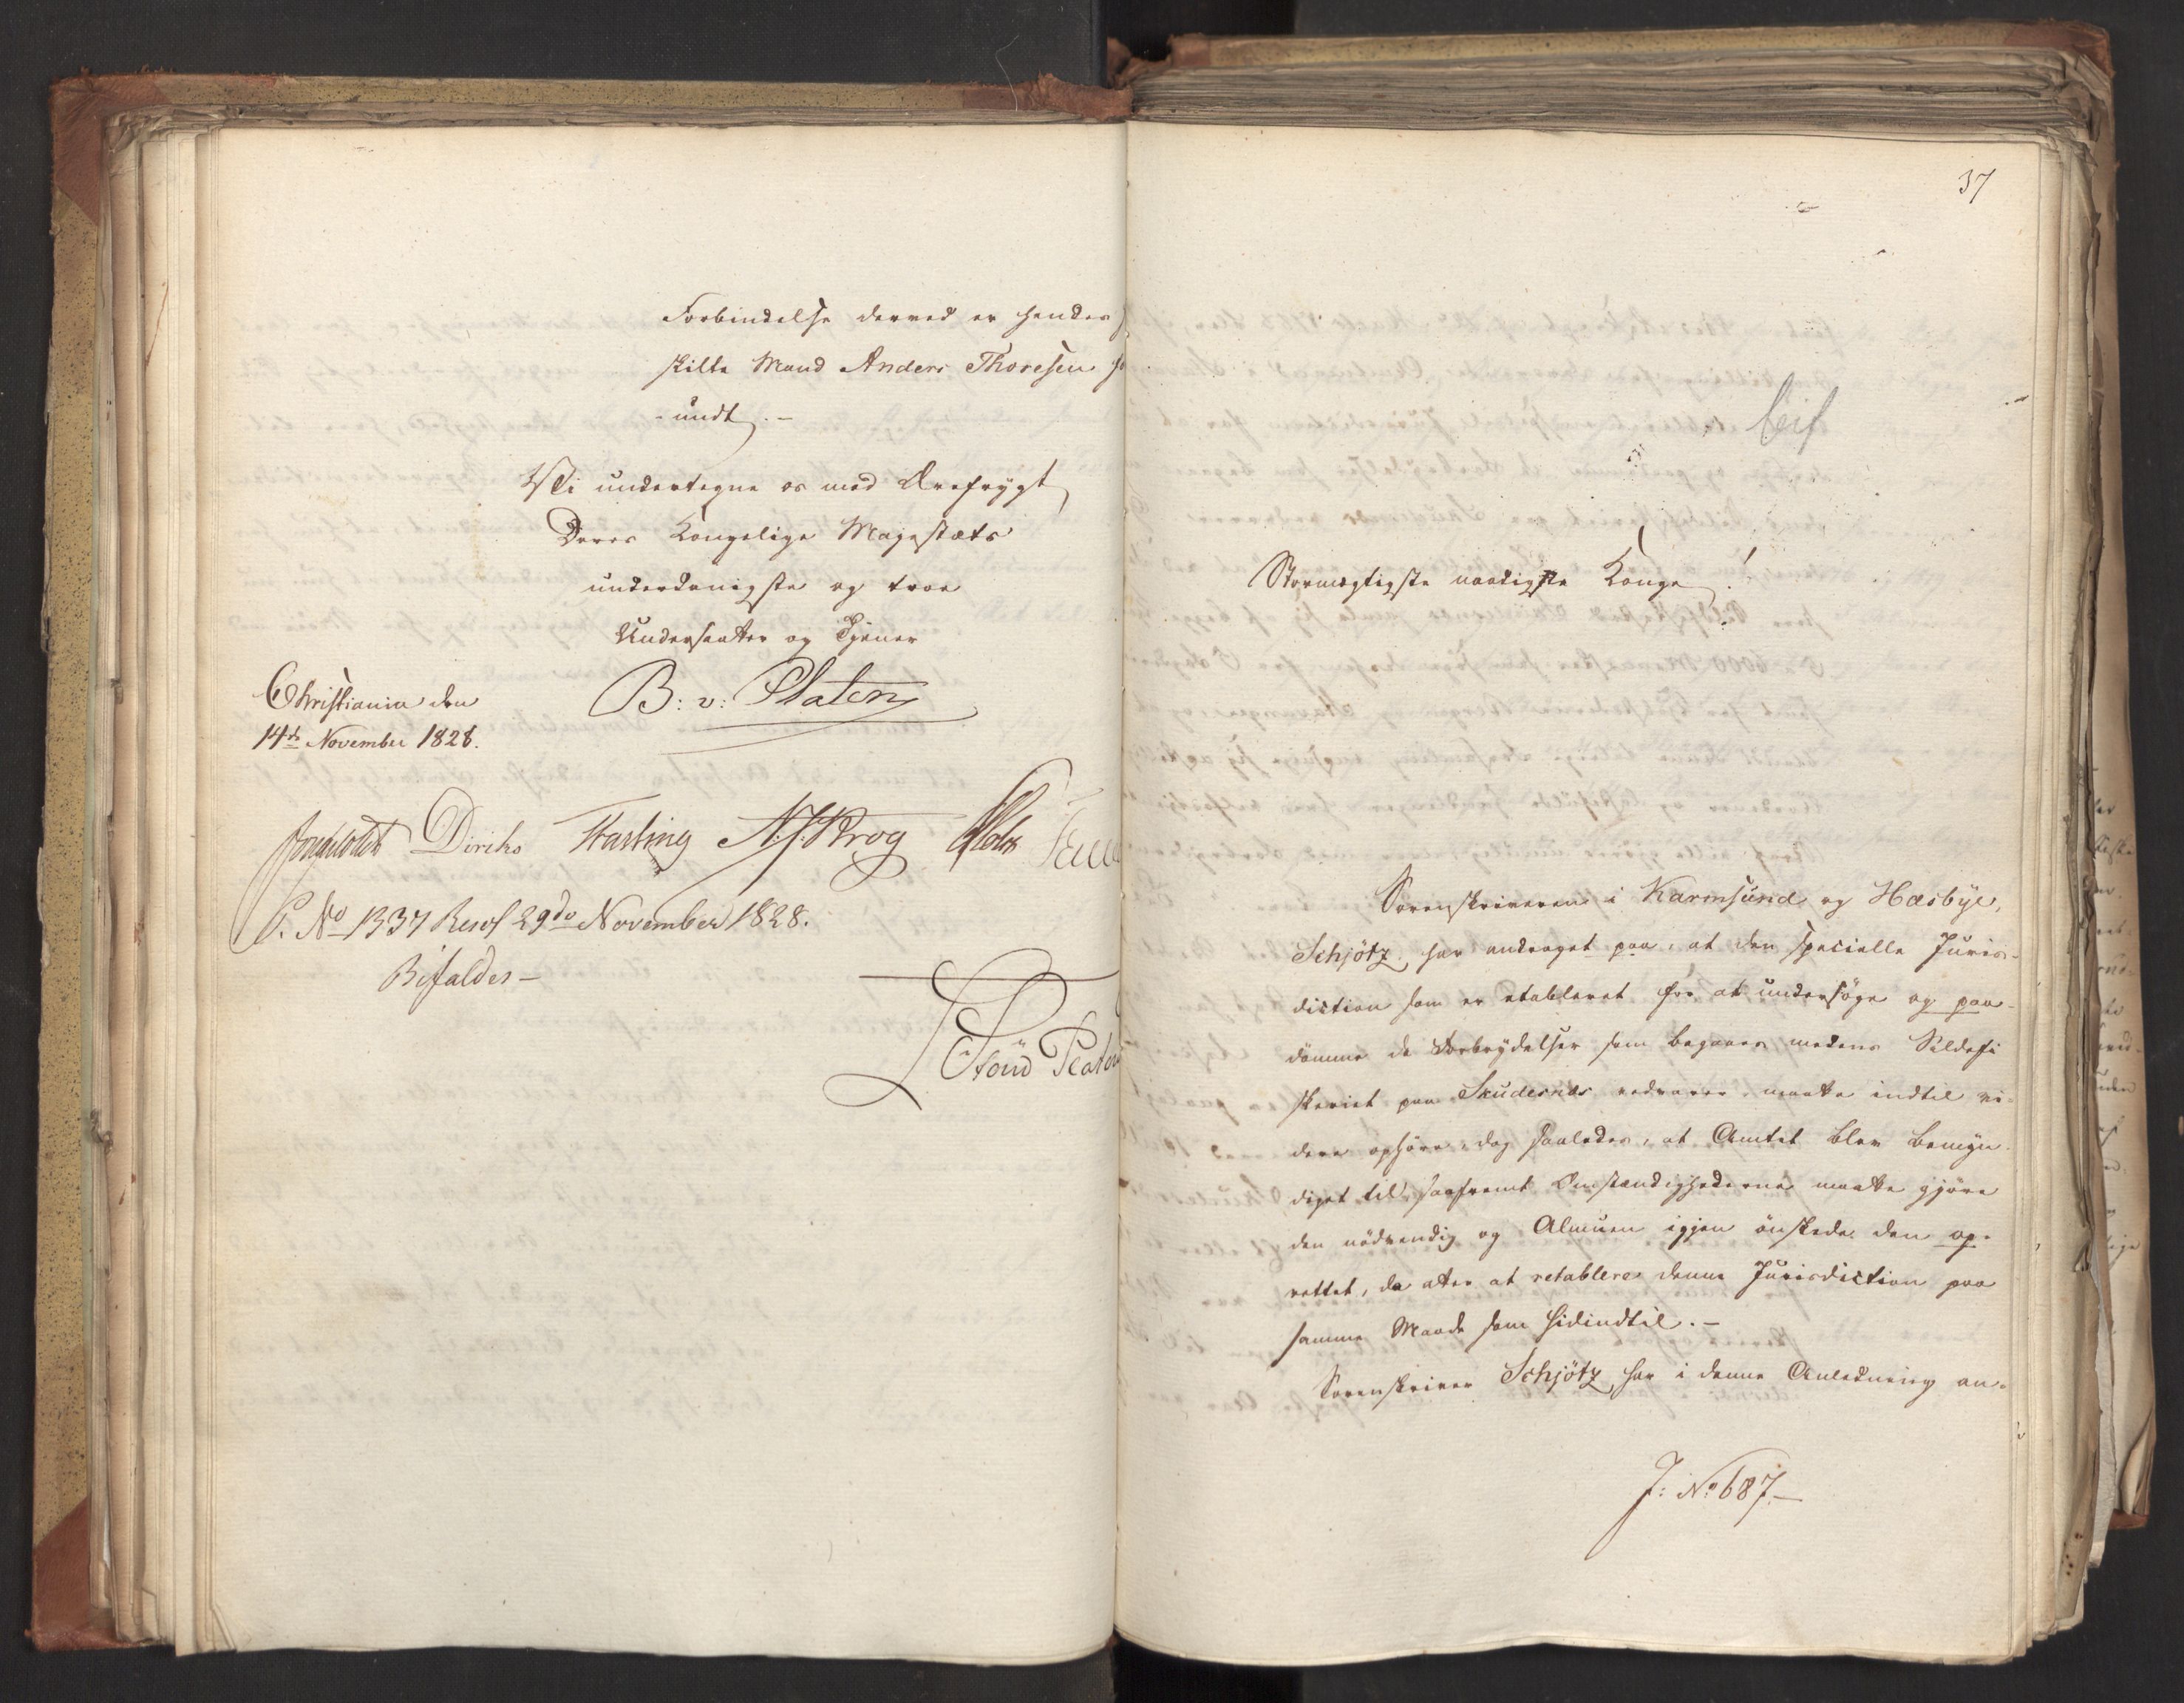 Forbindelse derved er hendes
skilte Mand Anders Thoresen
undt.-
Vi undertegne os med Ærefrygt
Deres Kongelige Majestæts
underdanigste og troe
Undersaatter og Tjener
B: v: Platen
Christiania den
14de November 1828.
Diriks Fasting Krog
P. No 1337 Resol 29de November 1828.
Bifaldes -
37
beif
Stormægtigste naadigste Konge!
Sorenskriveren i Karmsund og Hæsbye,
Schjötz, har andraget paa, at den specielle Juris-
diction som er etableret for at undersöge og paa-
dömme de Forbrydelser som begaaes medens Sildefi
skeriet paa Skudesnæs vedvarer maatte indtil vi-
dere ophöre, dog saaledes, at Amtet blev bemyn-
diget til, saafremt Omstændighederne maatte gjöre
den nödvendig og Almuen igjen önskede den op-
rettet, da atter at retablere denne Jurisdiction paa
samme Maade som hidindtil.-
Sorenskriver Schjötz har i denne Anledning an-
J: No 687.-